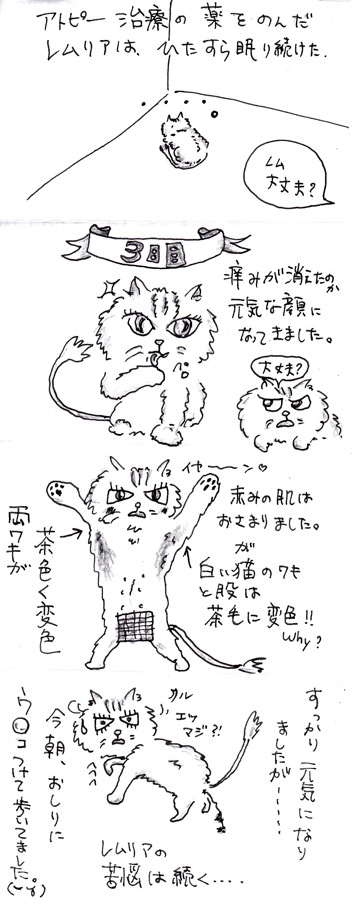 アトピー治療の薬をのんだ
レムリアは、ひたすら眠り続けた.
レム
大丈夫?
3日目
痒みが消えたのか
元気な顔に
なってきました。
大丈夫?
イヤーーン♡
赤みの肌は
おさまりました。
が
白い猫のワキ
と股は
茶毛に変色!!
Why?
両ワキが
茶色く変色
エッ
マジ?!
すっかり元気になり
ましたが-----
今朝、おしりに
ウ○コつけて歩いてました。
レムリアの
苦悩は続く....